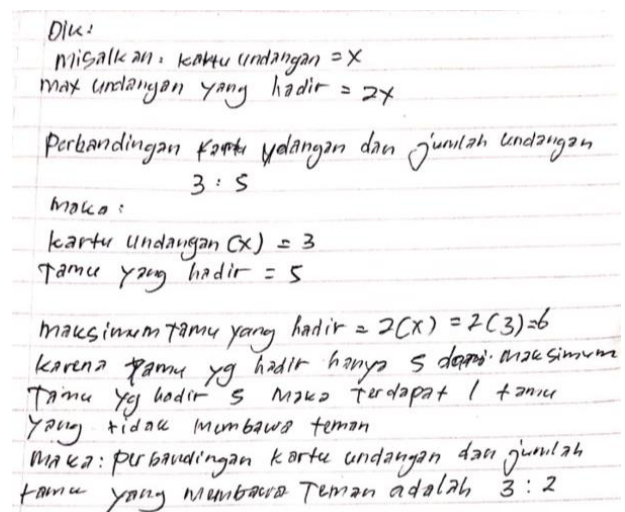 Dik:
Misalkan: kartu undangan = x
max undangan yang hadir = 2x
Perbandingan undangan dan jumlah undangan
3 : 5
maka :
kartu undangan (x) = 3
Tamu yang hadir = 5
maksimum tamu yang hadir = 2(x) = 2(3)=6
karena tamu yg hadir hanya 5 dari maksimum
Tamu yg hadir 5 maka terdapat 1 tamu
yang tidak membawa teman
maka: perbandingan kartu undangan dan jumlah
tamu yang membawa Teman adalah 3 : 2